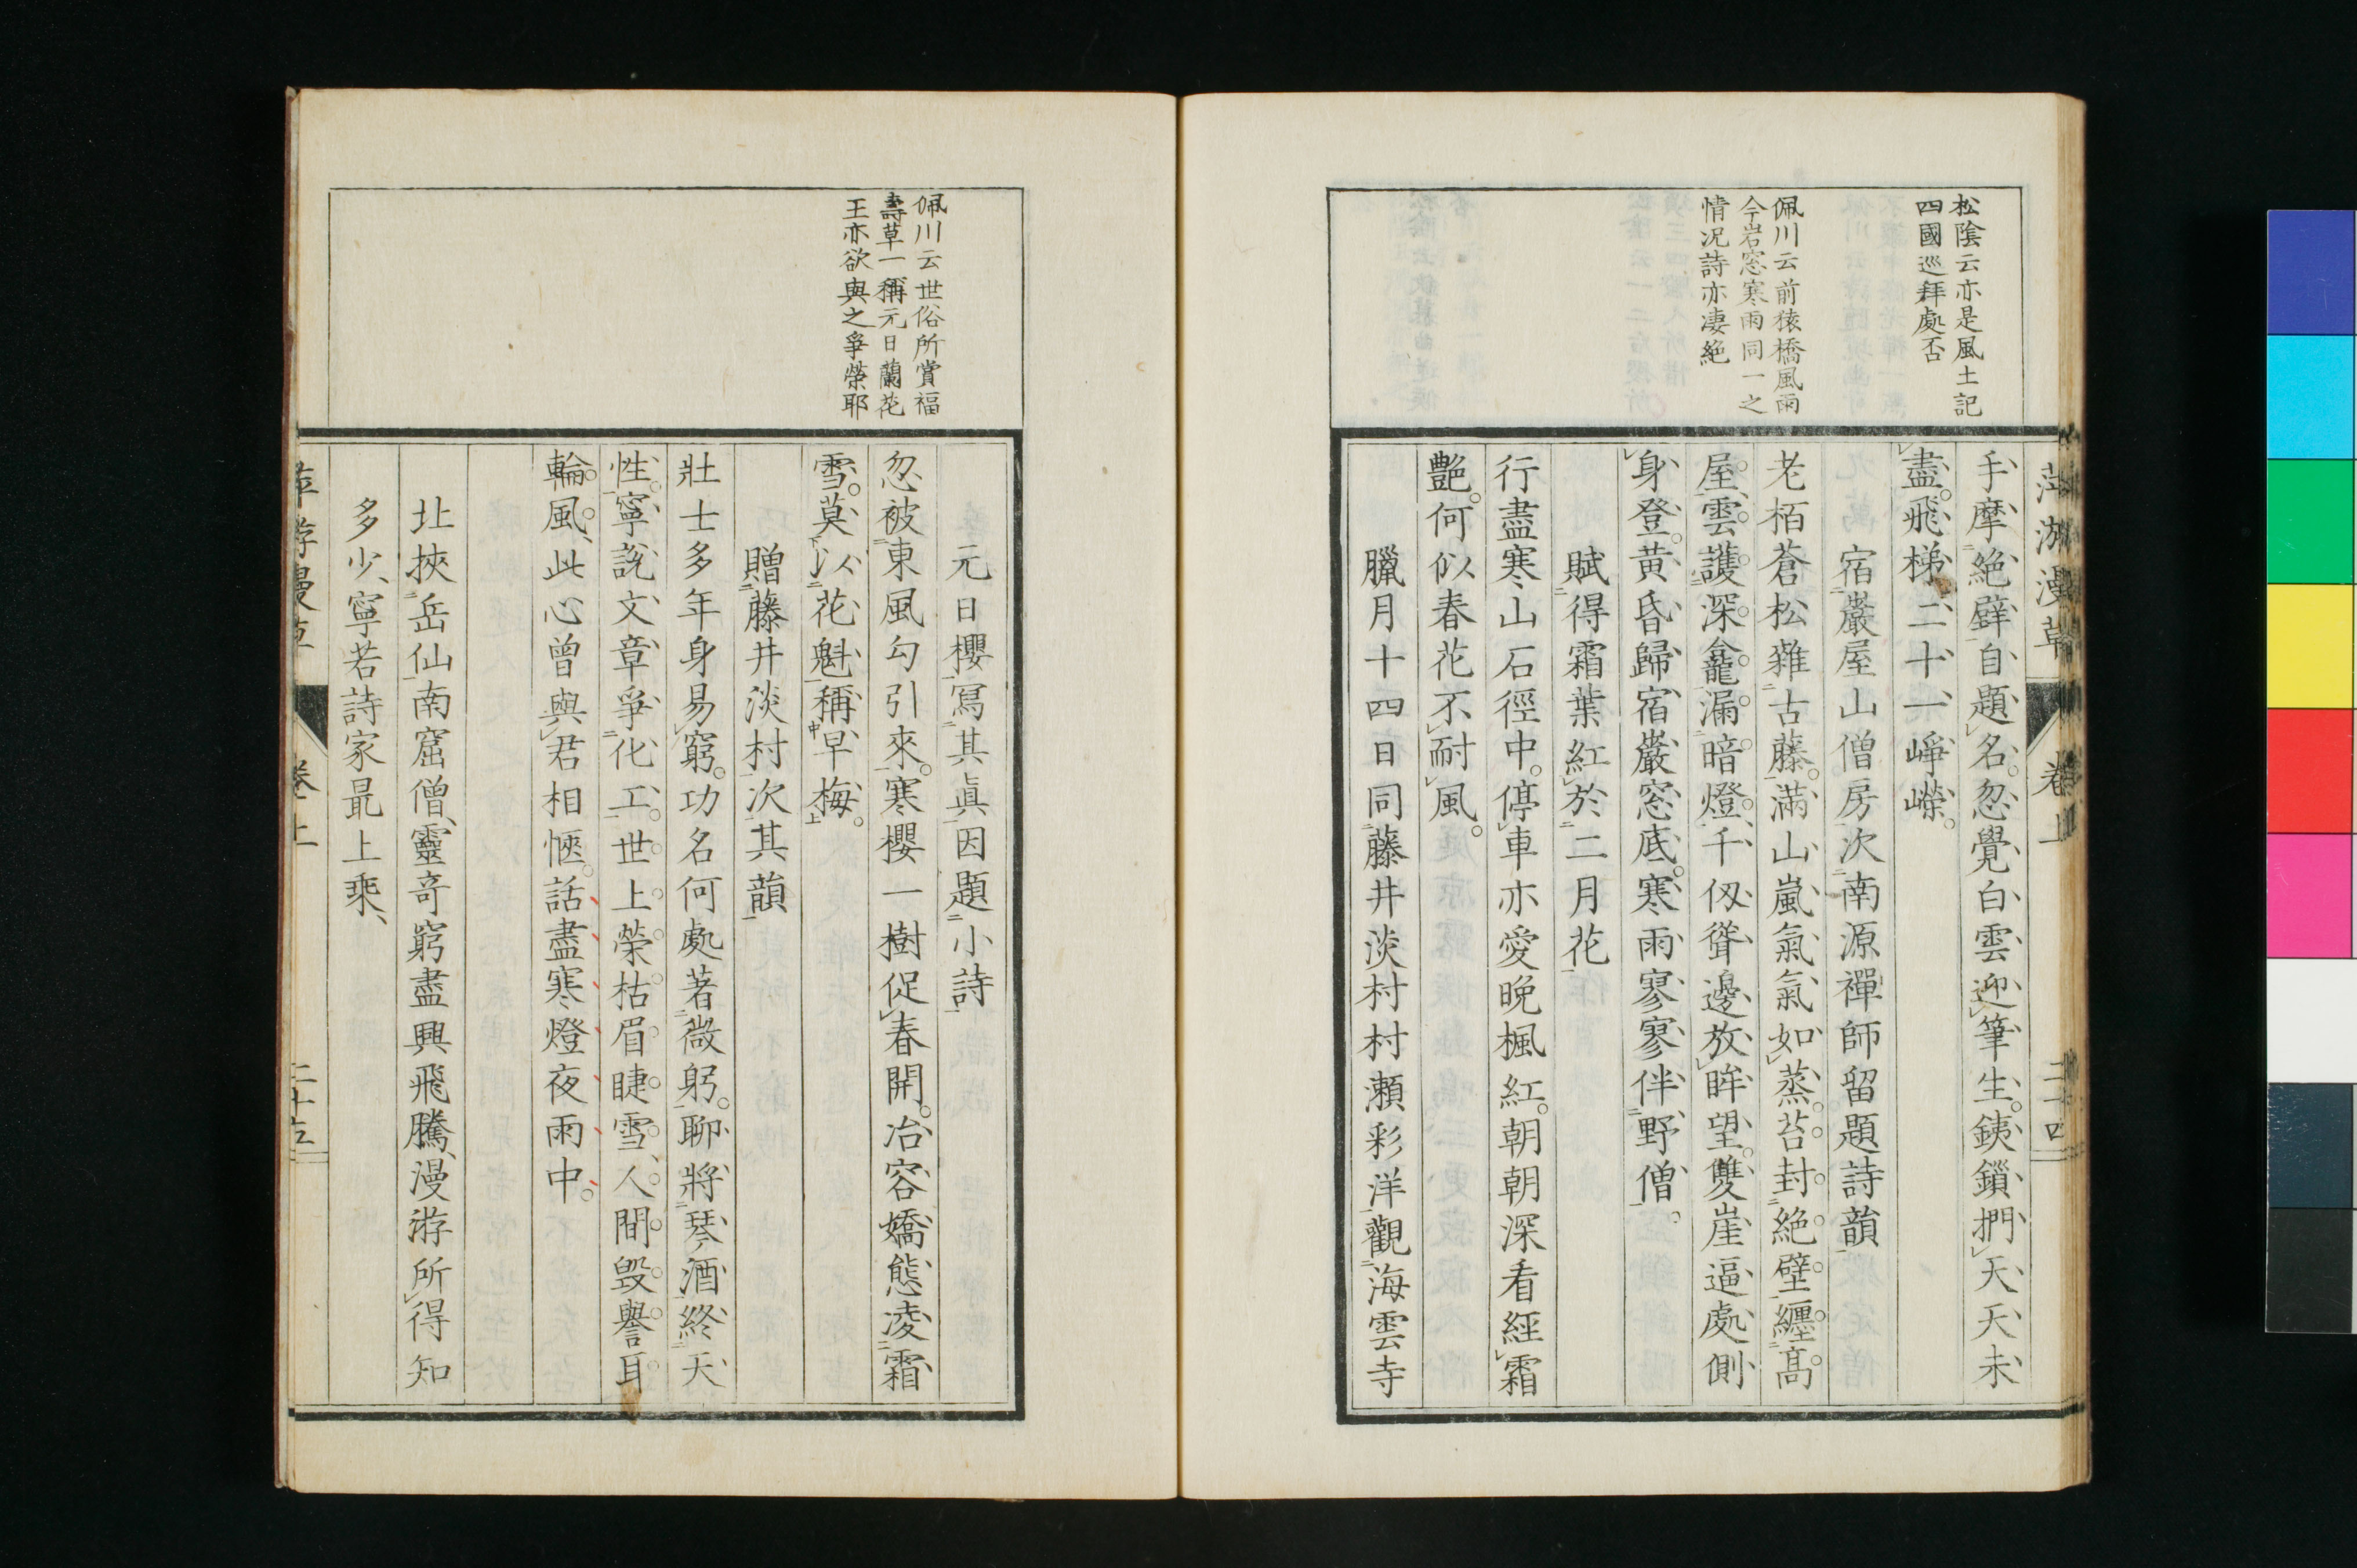 松陰云亦是風土記
四國巡拜處否
佩川云前猿橋風雨
今岩窓寒雨同一之
情况詩亦凄絶
萍游漫草
卷上
二十四
手摩絶壁自題名忽覺白雲迎筆生銕鎖捫天天未
盡飛梯二十一崢嶸
宿巖屋山僧房次南源禪師留題詩韻
老栢蒼松雜古藤滿山嵐氣氣如蒸苔封絶壁纒高
屋雲護深龕漏暗燈千仭聳邊放眸望雙崖逼處側
身登黄昏歸宿巖窓底寒雨寥寥伴野僧
賦得霜葉紅於二月花
行盡寒山石徑中停車亦愛晚楓紅朝朝深看經霜
艷何似春花不耐風
臘月十四日同藤井淡村村瀬彩洋觀海雲寺
佩川云世俗所賞福
壽草一稱元日蘭花
王亦欲與之爭榮耶
元日櫻寫其眞因題小詩
忽被東風勾引來寒櫻一樹促春開冶容嬌態凌霜
雪莫以花魁稱早梅
贈藤井淡村次其韻
壯士多年身易窮功名何處著微躬聊將琴酒終天
性寧説文章爭化工世上榮枯眉睫雪人間毀譽耳
輪風此心曾與君相愜話盡寒燈夜雨中
北挾岳仙南窟僧靈奇窮盡興飛騰漫游所得知
多少寧若詩家最上乘
萍游漫草
卷上
二十五